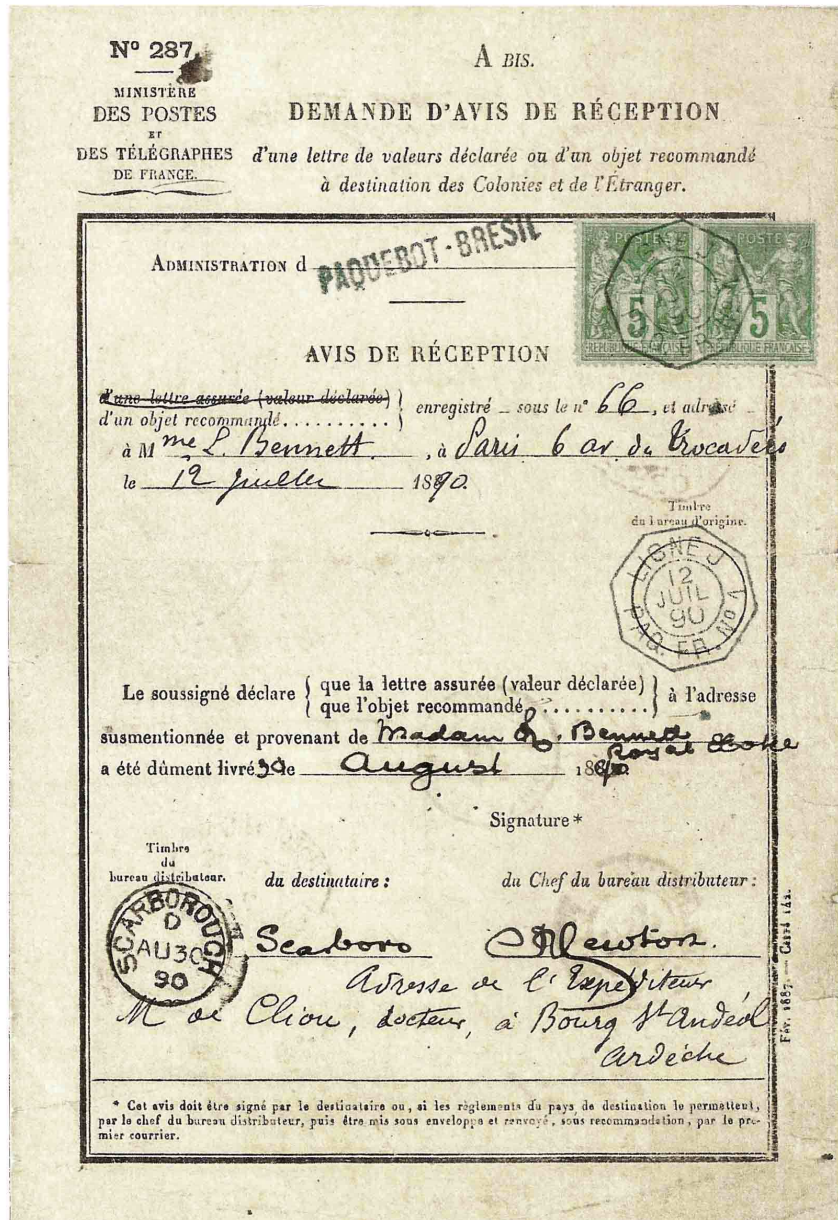 Nº 287
A BIS.
MINISTÈRE
DES POSTES
ET
DES TÉLÉGRAPHES
DE FRANCE.
DEMANDE D'AVIS DE RÉCEPTION
d'une lettre de valeurs déclarée ou d'un objet recommandé
à destination des Colonies et de l'Étranger.
ADMINISTRATION d
PAQUEBOT-BRESIL
POSTES
5
REPUBLIQUE FRANÇAISE
POSTES
5
REPUBLIQUE FRANÇAISE
AVIS DE RÉCEPTION
d'une lettre assurée (valeur déclarée)
d'un objet recommandé..........
enregistré _ sous le nº 66, et adressé _
à Mme L. Bennett, à Paris 6 av du Trocadéro
le 12 juillet 1890.
Timbre
du bureau d'origine.
LIGNE J
12
JUIL
90
PAQ. FR. Nº 1
Le soussigné déclare { que la lettre assurée (valeur déclarée) } à l'adresse
que l'objet recommandé..........
susmentionnée et provenant de Madam L. Bennett
Royal Hotel
a été dûment livré 30 le August 1890.
Signature *
Timbre
du
bureau distributeur.
du destinataire :
du Chef du bureau distributeur :
SCARBOROUGH
D
AU 30
90
Scarboro
Newton.
Adresse de l'Expéditeur
M de Cliou, docteur, à Bourg St Andéol
Ardèche
Fév. 1887. —
* Cet avis doit être signé par le destinataire ou, si les règlements du pays de destination le permettent,
par le chef du bureau distributeur, puis être mis sous enveloppe et renvoyé, sous recommandation, par le pre-
mier courrier.